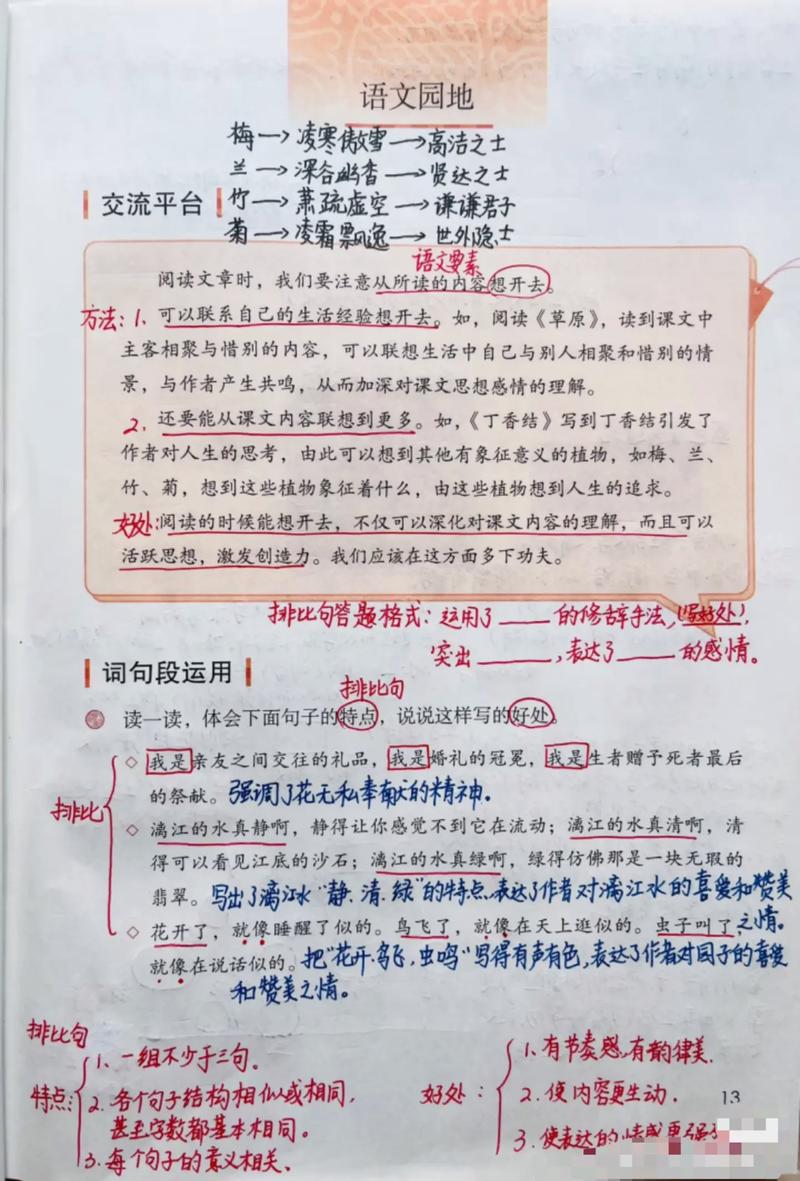 语文园地
梅→凌寒傲雪→高洁之士
兰→深谷幽香→贤达之士
交流平台
竹→萧疏虚空→谦谦君子
菊→凌霜飘逸→世外隐士
语文要素
阅读文章时，我们要注意从所读的内容想开去。
方法：1、可以联系自己的生活经验想开去。如，阅读《草原》，读到课文中
主客相聚与惜别的内容，可以联想生活中自己与别人相聚和惜别的情
景，与作者产生共鸣，从而加深对课文思想感情的理解。
2、还要能从课文内容联想到更多。如，《丁香结》写到丁香结引发了
作者对人生的思考，由此可以想到其他有象征意义的植物，如梅、兰、
竹、菊，想到这些植物象征着什么，由这些植物想到人生的追求。
好处：阅读的时候能想开去，不仅可以深化对课文内容的理解，而且可以
活跃思想，激发创造力。我们应该在这方面多下功夫。
排比句答题格式：运用了____的修辞手法，(写好处)，
突出____，表达了____的感情。
词句段运用
排比句
读一读，体会下面句子的特点，说说这样写的好处。
◇ 我是亲友之间交往的礼品，我是婚礼的冠冕，我是生者赠予死者最后
的祭献。强调了花无私奉献的精神.
排比
◇ 漓江的水真静啊，静得让你感觉不到它在流动；漓江的水真清啊，清
得可以看见江底的沙石；漓江的水真绿啊，绿得仿佛那是一块无瑕的
翡翠。写出了漓江水"静.清.绿"的特点.表达了作者对漓江水的喜爱和赞美
之情。
◇ 花开了，就像睡醒了似的。鸟飞了，就像在天上逛似的。虫子叫了，
就像在说话似的。把"花开.鸟飞.虫鸣"写得有声有色,表达了作者对园子的喜爱
和赞美之情。
排比句
特点：
1、一组不少于三句。
2、各个句子结构相似或相同，
甚至字数都基本相同。
3、每个句子的意义相关、
好处：
1、有节奏感,有韵律美.
2、使内容更生动.
3、使表达的情感更强
13